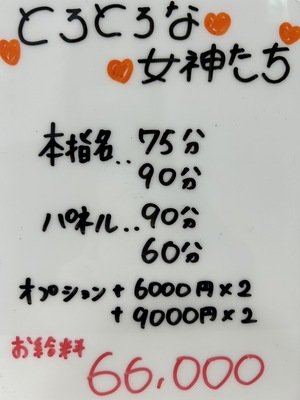 とろとろな
女神たち
本指名‥75分
90分
パネル‥90分
60分
オプション+6000円×2
+9000円×2
お給料
66,000